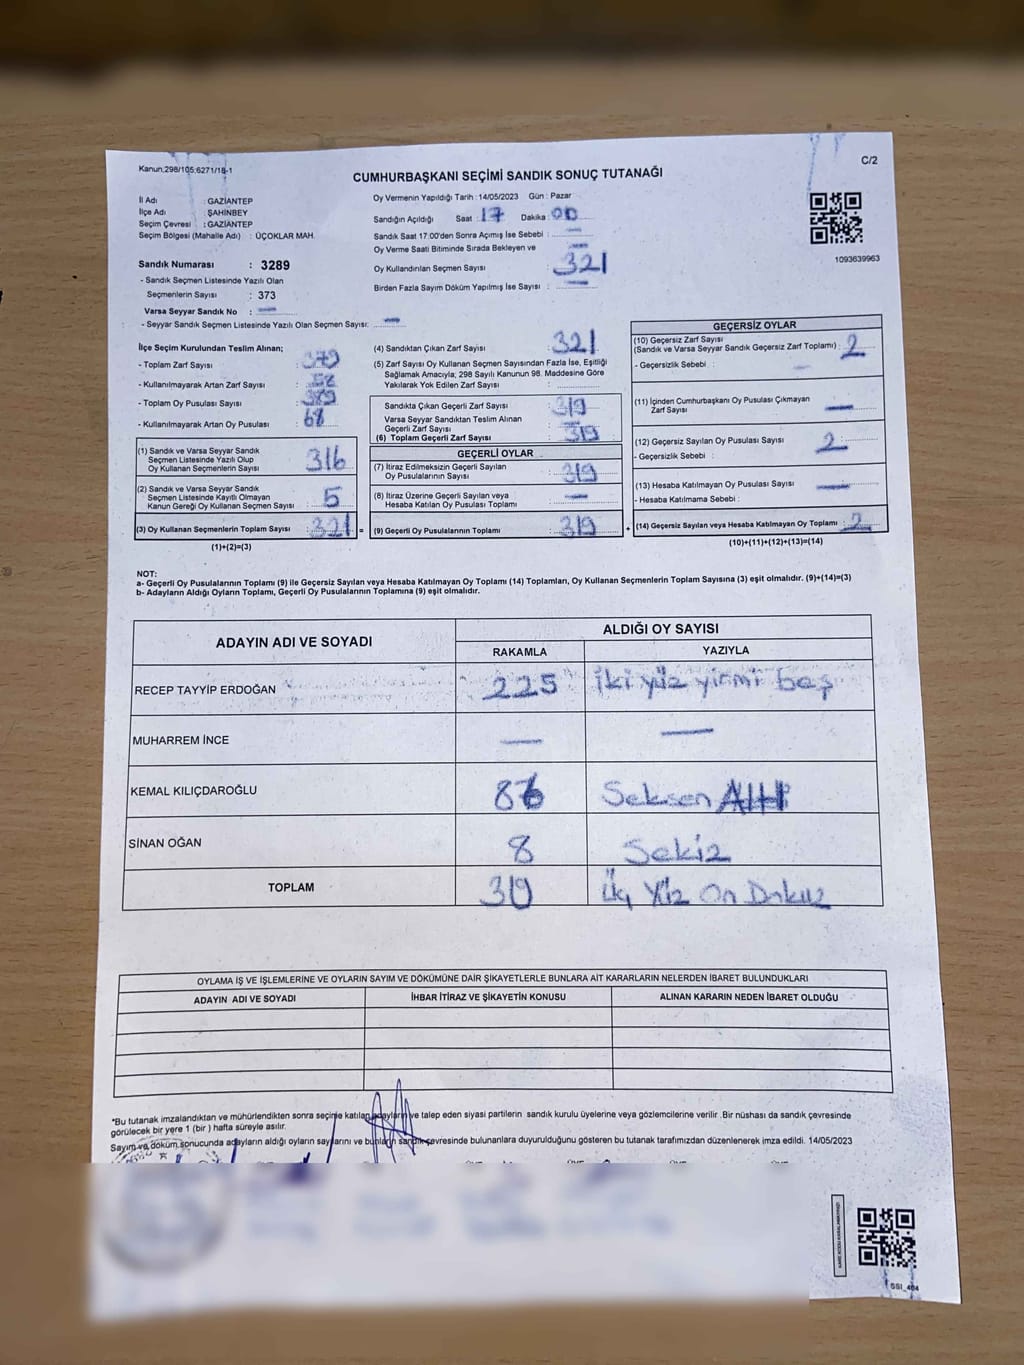 Kanun,298/105;6271/18-1
C/2
CUMHURBAŞKANI SEÇİMİ SANDIK SONUÇ TUTANAĞI
İl Adı : GAZİANTEP
İlçe Adı : ŞAHİNBEY
Seçim Çevresi : GAZİANTEP
Seçim Bölgesi (Mahalle Adı) : ÜÇOKLAR MAH.
Sandık Numarası : 3289
- Sandık Seçmen Listesinde Yazılı Olan
Seçmenlerin Sayısı : 373
Varsa Seyyar Sandık No : —
- Seyyar Sandık Seçmen Listesinde Yazılı Olan Seçmen Sayısı: —
Oy Vermenin Yapıldığı Tarih : 14/05/2023 Gün : Pazar
Sandığın Açıldığı Saat : 17 Dakika : 00
Sandık Saat 17:00'den Sonra Açılmış İse Sebebi : —
Oy Verme Saati Bitiminde Sırada Bekleyen ve : —
Oy Kullandırılan Seçmen Sayısı : 321
Birden Fazla Sayım Döküm Yapılmış İse Sayısı : —
1093639963
İlçe Seçim Kurulundan Teslim Alınan;
- Toplam Zarf Sayısı : 379
- Kullanılmayarak Artan Zarf Sayısı :
- Toplam Oy Pusulası Sayısı : 389
- Kullanılmayarak Artan Oy Pusulası : 68
(1) Sandık ve Varsa Seyyar Sandık
Seçmen Listesinde Yazılı Olup
Oy Kullanan Seçmenlerin Sayısı : 316
(2) Sandık ve Varsa Seyyar Sandık
Seçmen Listesinde Kayıtlı Olmayan
Kanun Gereği Oy Kullanan Seçmen Sayısı : 5
(3) Oy Kullanan Seçmenlerin Toplam Sayısı : 321 =
(1)+(2)=(3)
(4) Sandıktan Çıkan Zarf Sayısı : 321
(5) Zarf Sayısı Oy Kullanan Seçmen Sayısından Fazla İse, Eşitliği
Sağlamak Amacıyla; 298 Sayılı Kanunun 98. Maddesine Göre
Yakılarak Yok Edilen Zarf Sayısı :
Sandıkta Çıkan Geçerli Zarf Sayısı : 319
Varsa Seyyar Sandıktan Teslim Alınan
Geçerli Zarf Sayısı :
(6) Toplam Geçerli Zarf Sayısı : 319
GEÇERLİ OYLAR
(7) İtiraz Edilmeksizin Geçerli Sayılan
Oy Pusulalarının Sayısı : 319
(8) İtiraz Üzerine Geçerli Sayılan veya
Hesaba Katılan Oy Pusulası Toplamı : —
(9) Geçerli Oy Pusulalarının Toplamı : 319 +
GEÇERSİZ OYLAR
(10) Geçersiz Zarf Sayısı
(Sandık ve Varsa Seyyar Sandık Geçersiz Zarf Toplamı) : 2
- Geçersizlik Sebebi : —
(11) İçinden Cumhurbaşkanı Oy Pusulası Çıkmayan
Zarf Sayısı : —
(12) Geçersiz Sayılan Oy Pusulası Sayısı : 2
- Geçersizlik Sebebi :
(13) Hesaba Katılmayan Oy Pusulası Sayısı : —
- Hesaba Katılmama Sebebi :
(14) Geçersiz Sayılan veya Hesaba Katılmayan Oy Toplamı : 2
(10)+(11)+(12)+(13)=(14)
NOT:
a- Geçerli Oy Pusulalarının Toplamı (9) ile Geçersiz Sayılan veya Hesaba Katılmayan Oy Toplamı (14) Toplamları, Oy Kullanan Seçmenlerin Toplam Sayısına (3) eşit olmalıdır. (9)+(14)=(3)
b- Adayların Aldığı Oyların Toplamı, Geçerli Oy Pusulalarının Toplamına (9) eşit olmalıdır.
ADAYIN ADI VE SOYADI
ALDIĞI OY SAYISI
RAKAMLA YAZIYLA
RECEP TAYYİP ERDOĞAN 225 iki yüz yirmi beş
MUHARREM İNCE — —
KEMAL KILIÇDAROĞLU 86 Seksen Altı
SİNAN OĞAN 8 Sekiz
TOPLAM 319 Üç Yüz On Dokuz
OYLAMA İŞ VE İŞLEMLERİNE VE OYLARIN SAYIM VE DÖKÜMÜNE DAİR ŞİKAYETLERLE BUNLARA AİT KARARLARIN NELERDEN İBARET BULUNDUKLARI
ADAYIN ADI VE SOYADI İHBAR İTİRAZ VE ŞİKAYETİN KONUSU ALINAN KARARIN NEDEN İBARET OLDUĞU
*Bu tutanak imzalandıktan ve mühürlendikten sonra seçime katılan adayların ve talep eden siyasi partilerin sandık kurulu üyelerine veya gözlemcilerine verilir .Bir nüshası da sandık çevresinde
görülecek bir yere 1 (bir ) hafta süreyle asılır.
Sayım ve döküm sonucunda adayların aldığı oyların sayılarını ve bunların sandık çevresinde bulunanlara duyurulduğunu gösteren bu tutanak tarafımızdan düzenlenerek imza edildi. 14/05/2023